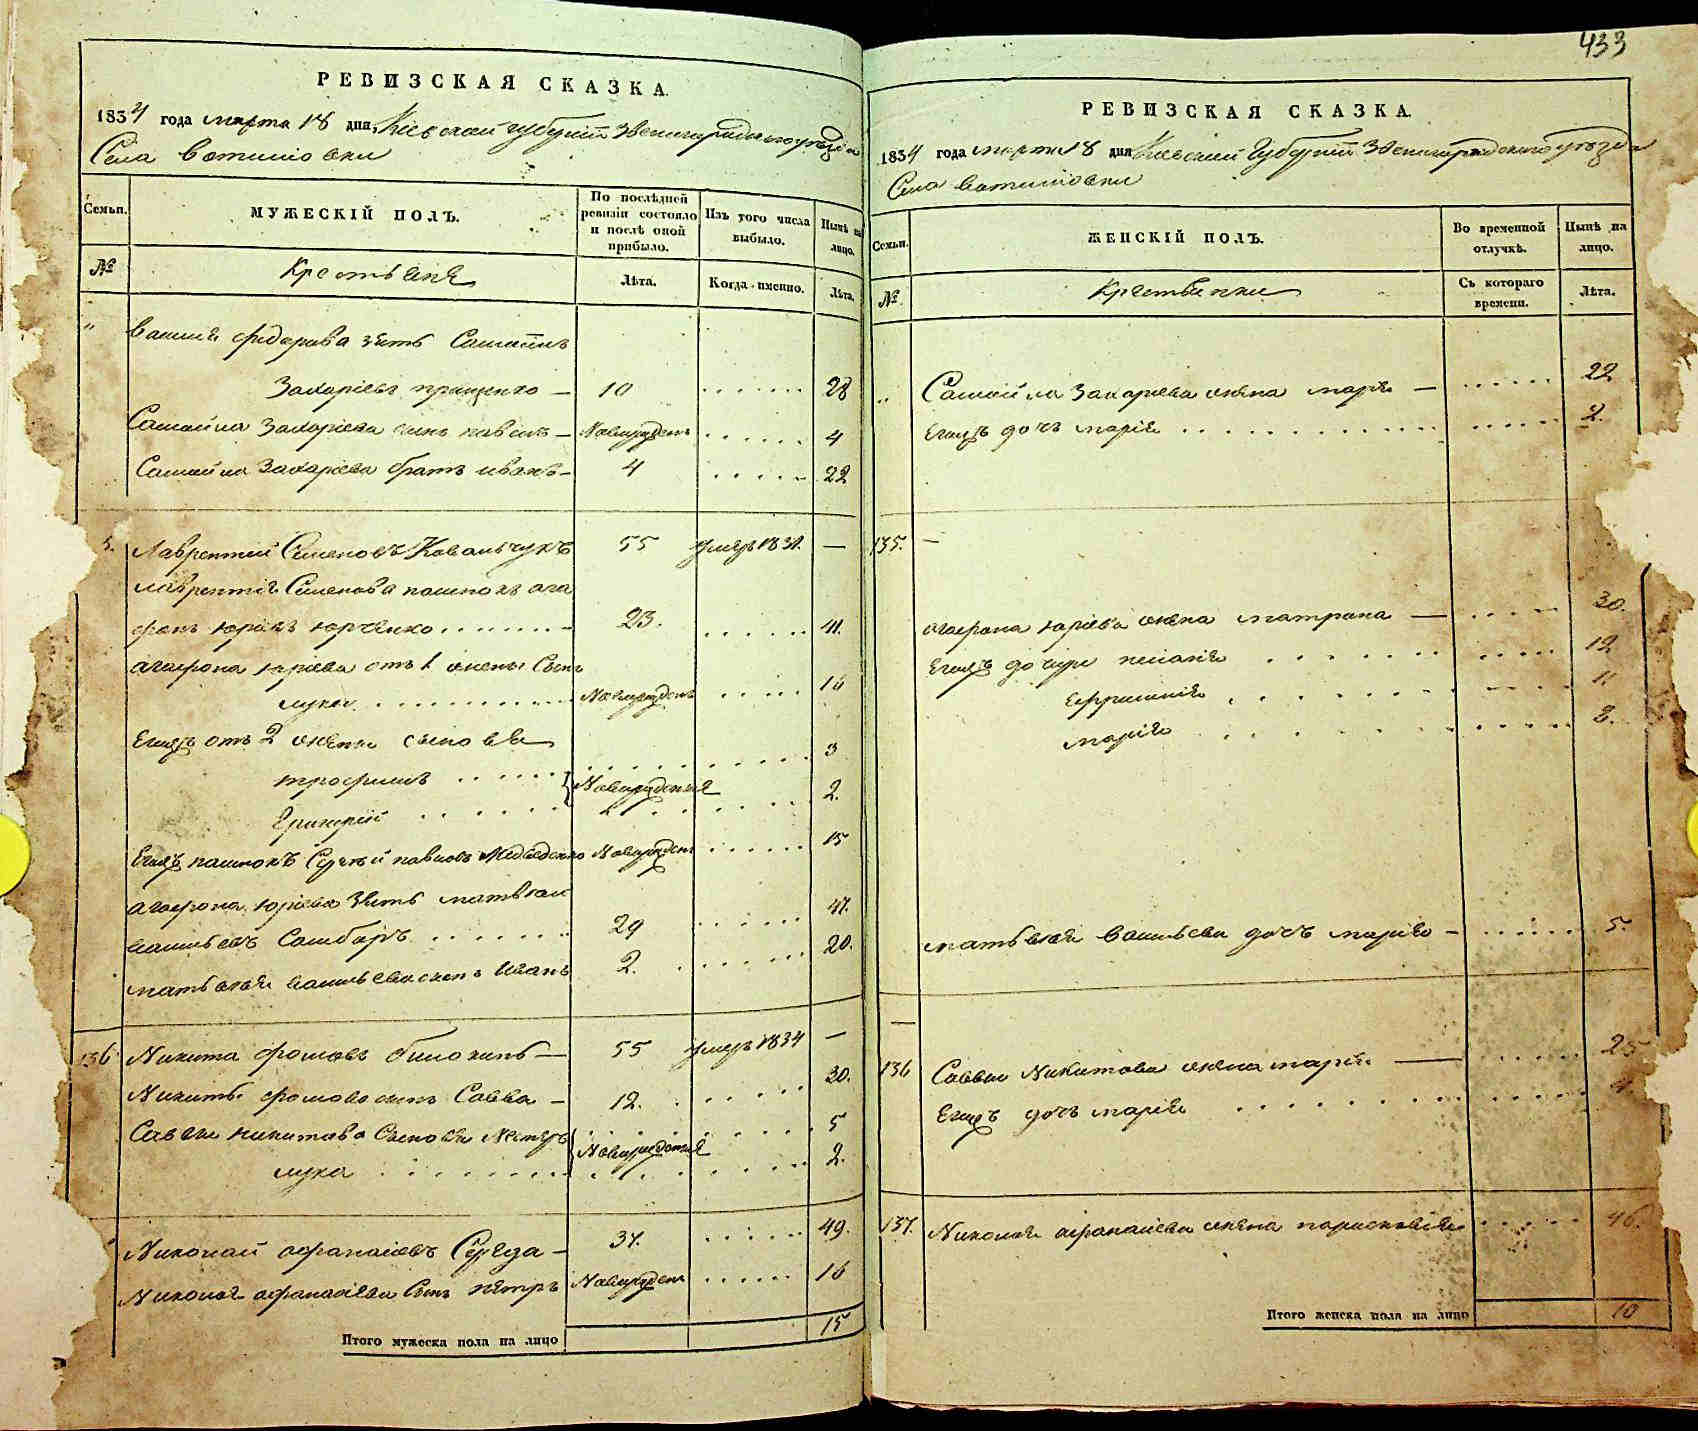 433
РЕВИЗСКАЯ СКАЗКА.
1834 года марта 18 дня, Кіевской губерніи Звенигородского уезда
Села
Семьи.
МУЖЕСКІЙ ПОЛЪ.
По послѣдней ревизіи состояло и послѣ оной прибыло.
Изъ того числа выбыло.
Нынѣ на лицо.
№
Крестьяне
Лѣта.
Когда именно.
Лѣта.
" Василя Федорова зять Самойлъ
Захаріевъ Пращенко — 10 28
Самойла Захаріева сынъ Павелъ — Новорожденъ 4
Самойла Захаріева братъ Иванъ — 4 22
5. Лаврентий Семеновъ Ковальчукъ 55 умеръ 1831. —
Лаврентія Семенова пасынокъ Ага
фонъ Юріевъ Юрченко 23. 41.
Агафона Юріева отъ 1 жены сынъ
Лука Новорожденъ 16
Егожъ отъ 2 жены сыновья
Трофимъ 3
Новорожденыя
Григорій 2.
Егожъ пасынокъ Сергей Павловъ Медведенко Новорожденъ 15
Агафона Юріева зять Матвей
Васильевъ 29 47.
Матвея Васильева сынъ Иванъ 2. 20.
136 Никита Фомовъ 55 умеръ 1834 —
Никиты Фомова сынъ Савва — 12. 30.
Саввы Никитова сыновья Нестеръ 5
Новорожденыя
Лука 2.
Николай Афанасіевъ Середа — 34. 49.
Николая Афанасіева сынъ Петръ Новорожденъ 16
Итого мужеска пола на лицо 15
РЕВИЗСКАЯ СКАЗКА.
1834 года марта 18 дня Кіевской Губерніи Звенигородского уезда
Села
Семьи.
ЖЕНСКІЙ ПОЛЪ.
Во временной отлучкѣ.
Нынѣ на лицо.
№.
Крестьянки
Съ котораго времени.
Лѣта.
" Самойла Захарьева жена Марія — 22
Егожъ дочь Марія 2.
135. —
Агафона Юріева жена Матрона — 30.
Егожъ дочери 12
Ефросинія 11
Марія 8.
Матвея Васильева дочь Марія — 5.
136 Саввы Никитова жена Марія — 25
Егожъ дочь Марія 4.
137. Николая Афанасіева жена Парасковія 46.
Итого женска пола на лицо 10